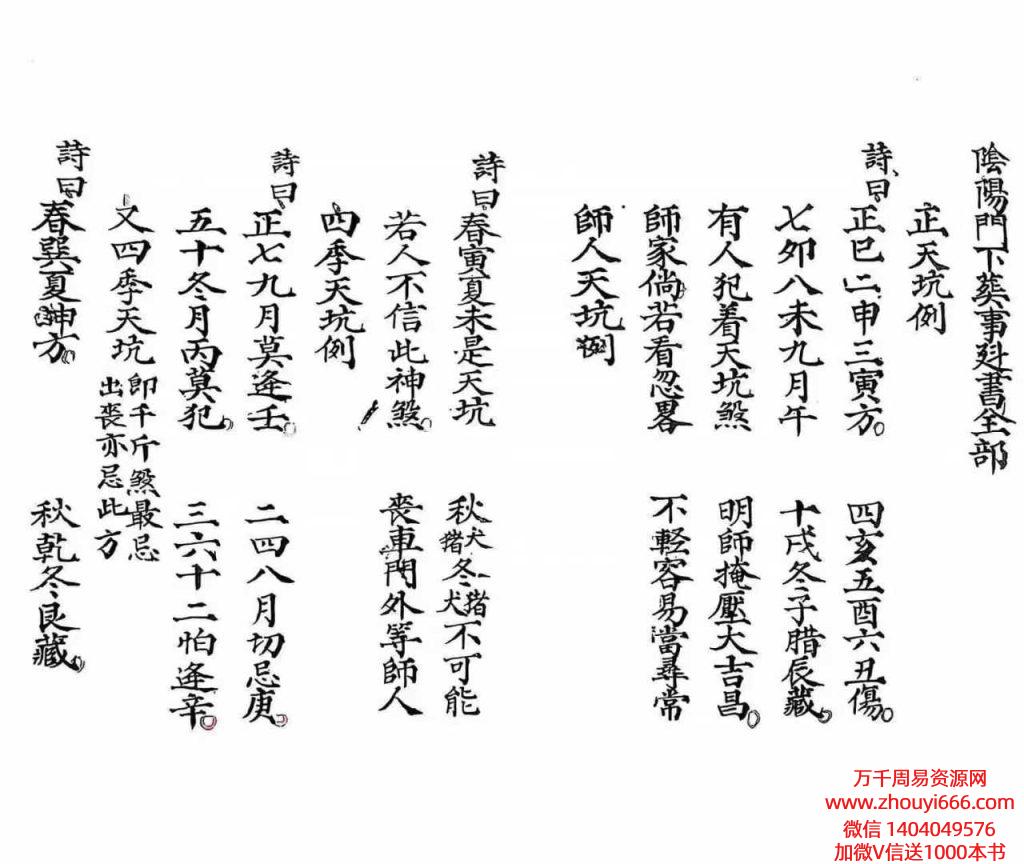 陰陽門下葬事𡊮書全部
正天坑例
詩曰正巳二申三寅方 四亥五酉六丑傷
七卯八未九月午 十戌冬子腊辰藏
有人犯着天坑煞 明師掩壓大吉昌
師家倘若看忽畧 不輕容易當尋常
師人天坑例
詩曰春寅夏未是天坑 秋犬猪冬猪犬不可能
若人不信此神煞 喪車門外等師人
四季天坑例
詩曰正七九月莫逢壬 二四八月切忌庚
五十冬月丙莫犯 三六十二怕逢辛
又四季天坑 即千斤煞最忌
出喪亦忌此方
詩曰春巽夏坤方 秋乾冬艮藏
万千周易资源网
www.zhouyi666.com
微信 1404049576
加微V信送1000本书